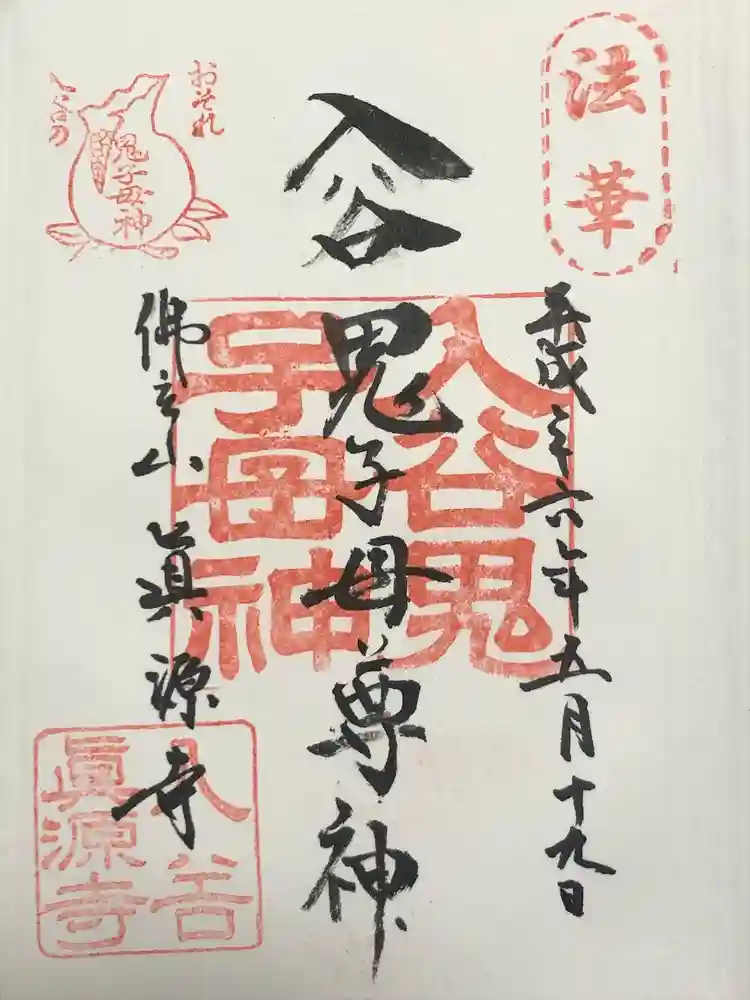 法華
おそれ
入谷の
鬼子母神
平成二十六年五月十九日
入谷
鬼子母尊神
入谷鬼
子母神
佛立山 眞源寺
入谷
眞源寺